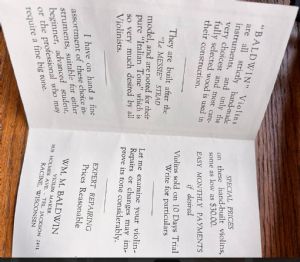 "BALDWIN" Violins
are all strictly hand-made
very and only the
choicest and most care-
fully selected wood is used in
their construction.
They are built after the
"Le MESSIE" STRAD
model, and are noted for their
pure Italian Tone which is
so very much desired by all
Violinists.
I have on hand a fine
assortment of these choice in-
struments, suitable for either
beginner, advanced student,
or the professional who may
require a fine big tone.
SPECIAL PRICES
on these hand-built violins,
some as low as $50.00.
EASY MONTHLY PAYMENTS
if desired
Violins sold on 10 Days Trial
Write for particulars
Let me examine your violin-
Repairs or changes may im-
prove its tone considerably.
EXPERT REPAIRING
Prices Reasonable
WM. M. BALDWIN
VIOLIN MAKER
HOLMES AVE. TEL. JACKSON
RACINE, WISCONSIN